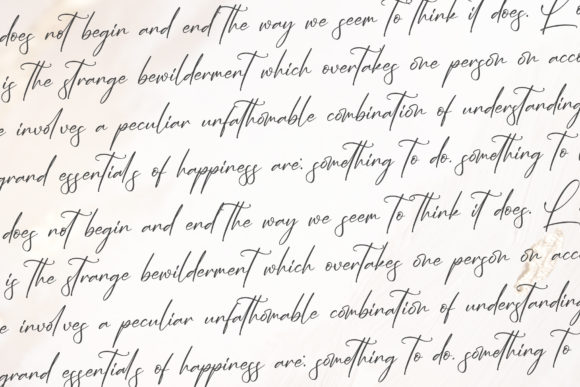 does not begin and end the way we seem to think it does. L
is the strange bewilderment which overtakes one person on acco
e involves a peculiar unfathomable combination of understanding
grand essentials of happiness are: something to do, something to
does not begin and end the way we seem to think it does. L
is the strange bewilderment which overtakes one person on acco
e involves a peculiar unfathomable combination of understanding
grand essentials of happiness are: something to do, something to